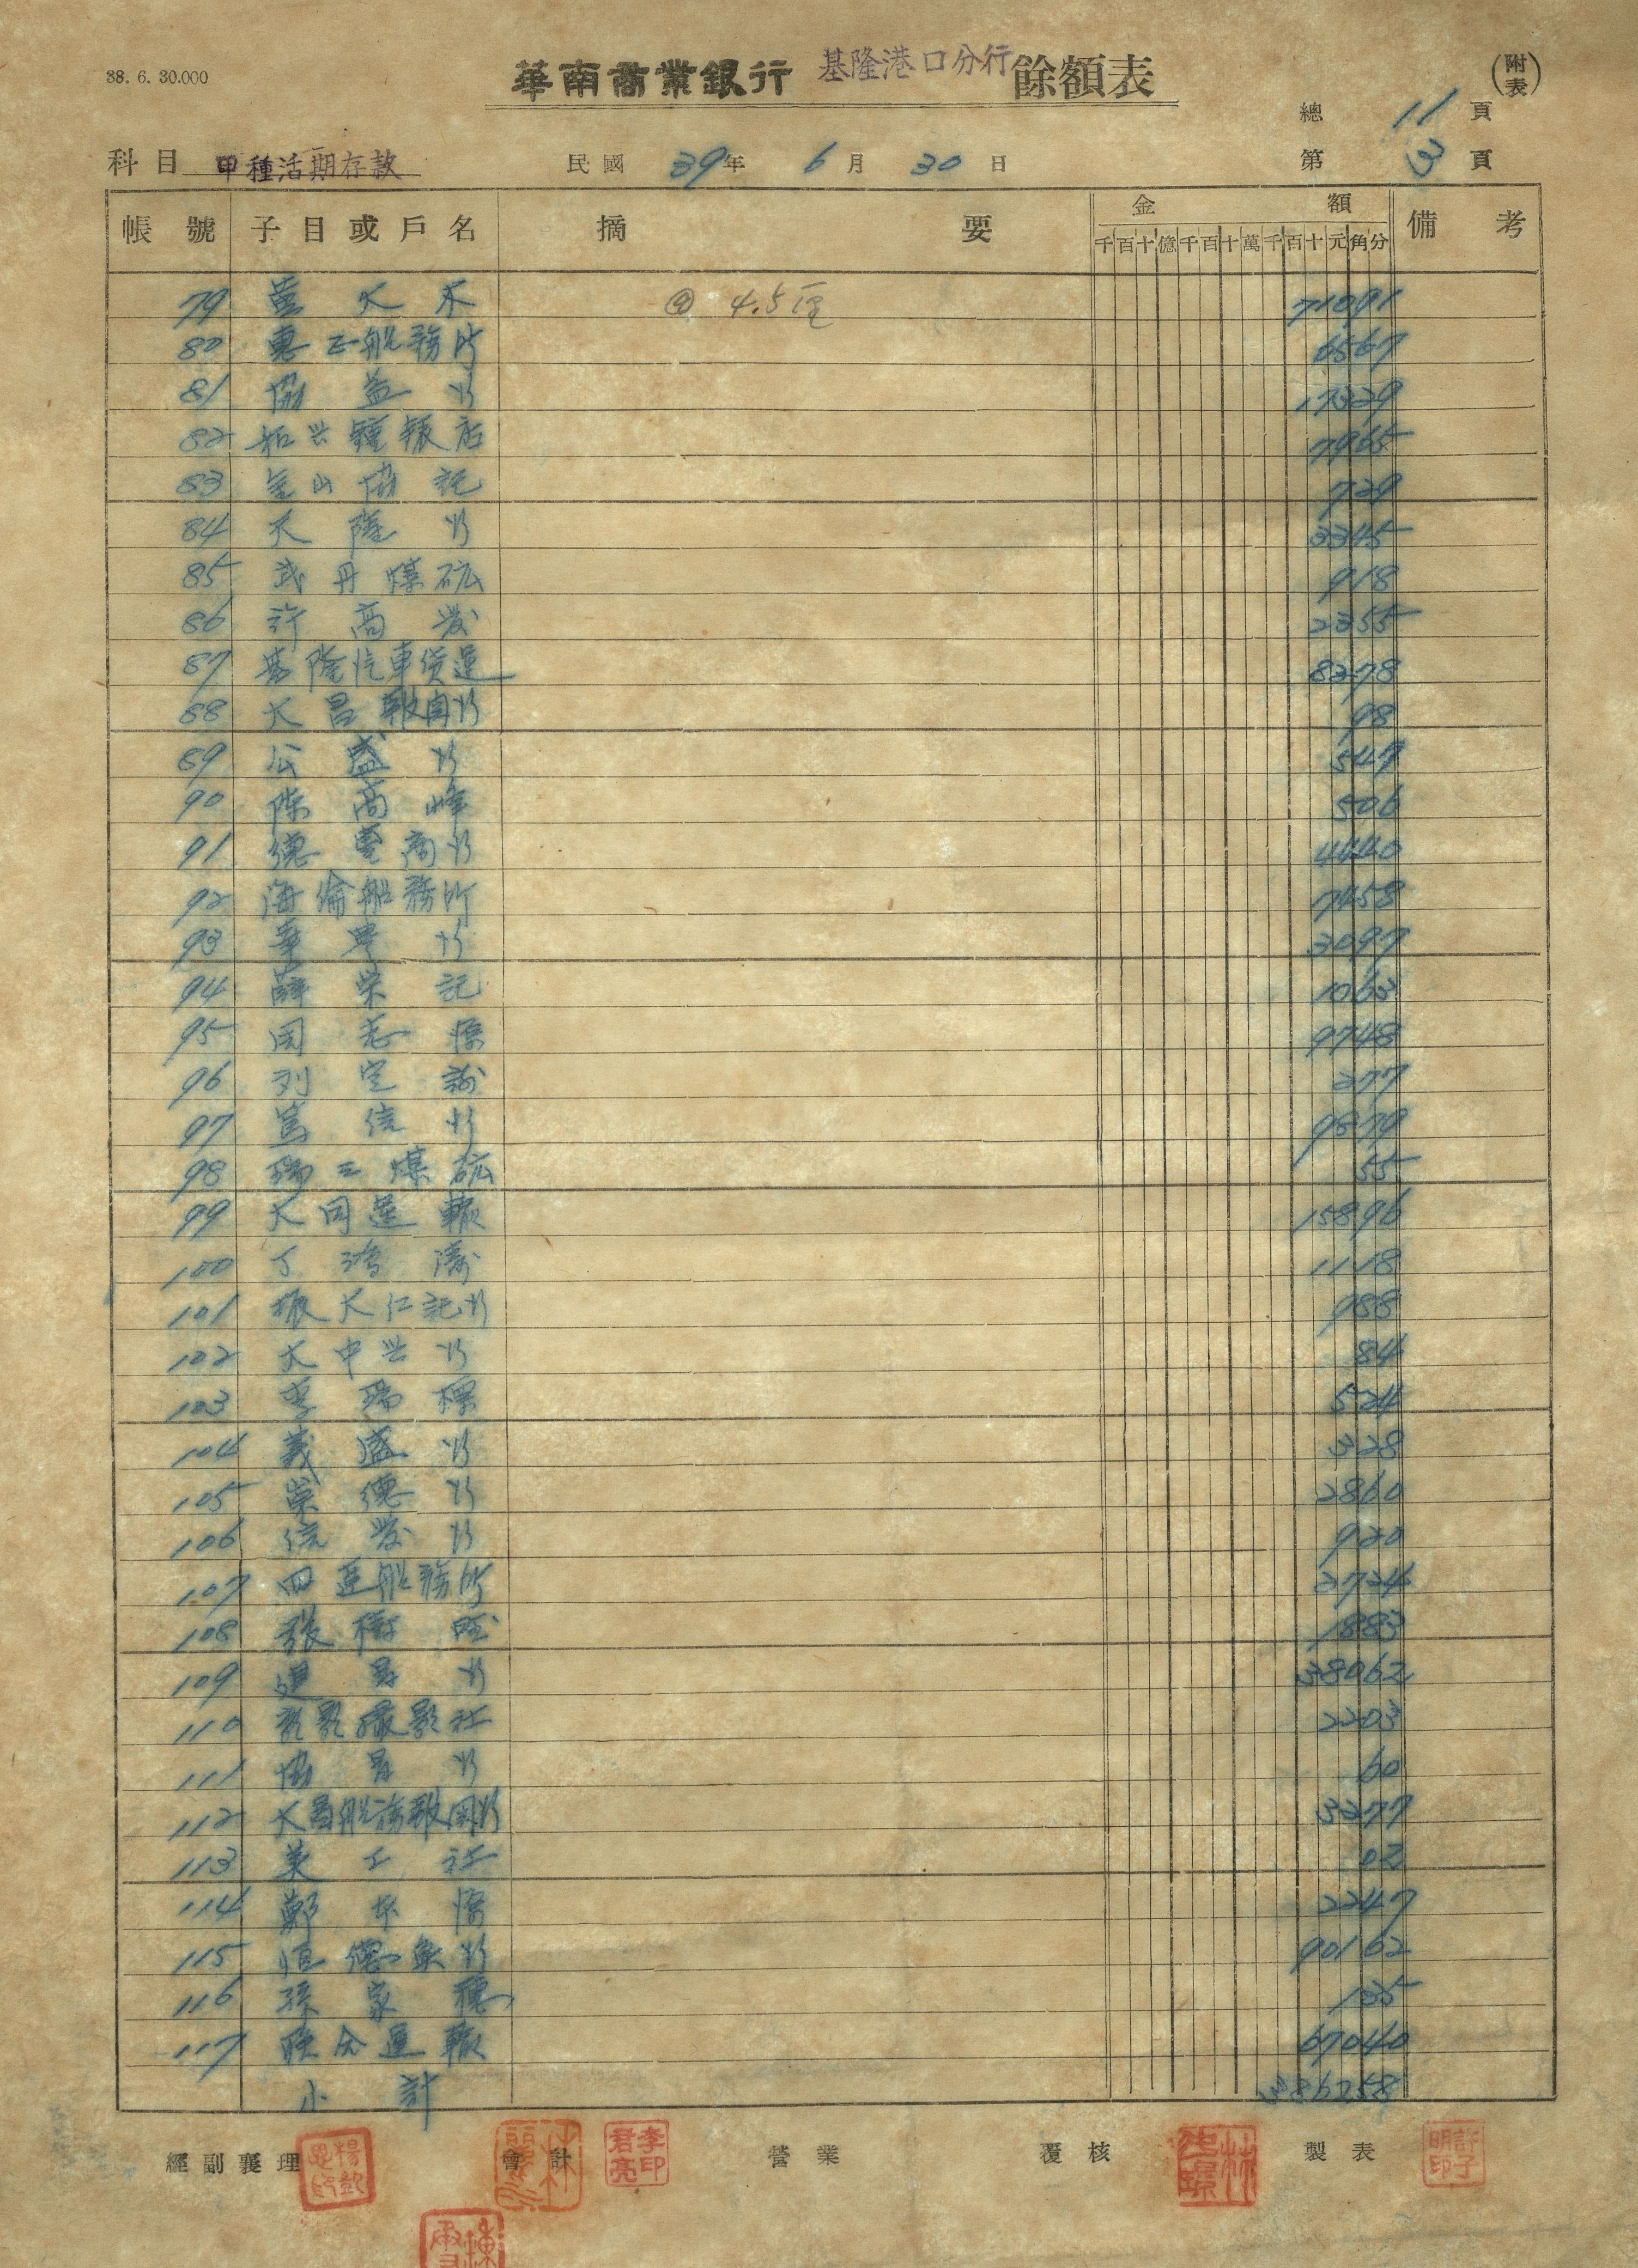 38. 6. 30.000
華南商業銀行 基隆港口分行 餘額表
(附表)
總 11 頁
科目 甲種活期存款 民國 39 年 6 月 30 日 第 3 頁
帳號 子目或戶名 摘要 金額 備考
千百十億千百十萬千百十元角分
79 大 @ 4.5厘 71091
80 惠正船務所 6567
81 協益行 17329
82 拓興鐘錶店 7965
83 金山協記 729
84 大隆行 3345
85 武丹煤礦 918
86 許高發 2355
87 基隆汽車貨運 8278
88 大昌報関行 98
89 公盛行 547
90 陳尚峰 506
91 德豐商行 4440
92 海倫船務所 7458
93 華興行 3097
94 薛榮記 1063
95 周志 9748
96 列定 277
97 篤信行 9879
98 瑞三煤礦 55
99 大同運輸 15896
100 丁鴻濤 1118
101 振大仁記行 988
102 大中興行 84
103 李瑞標 524
104 義盛行 328
105 崇德行 2860
106 信發行 920
107 四達船務所 2724
108 張樹 1883
109 建昌行 38062
110 影攝影社 2203
111 協昌行 60
112 大昌船務報関行 3277
113 美工社 02
114 鄭 2247
115 恒德魚行 90162
116 孫家 135
117 聯合運輸 67040
小計 386258
經副襄理 會計 營業 覆核 製表
李君亮印
許子明印